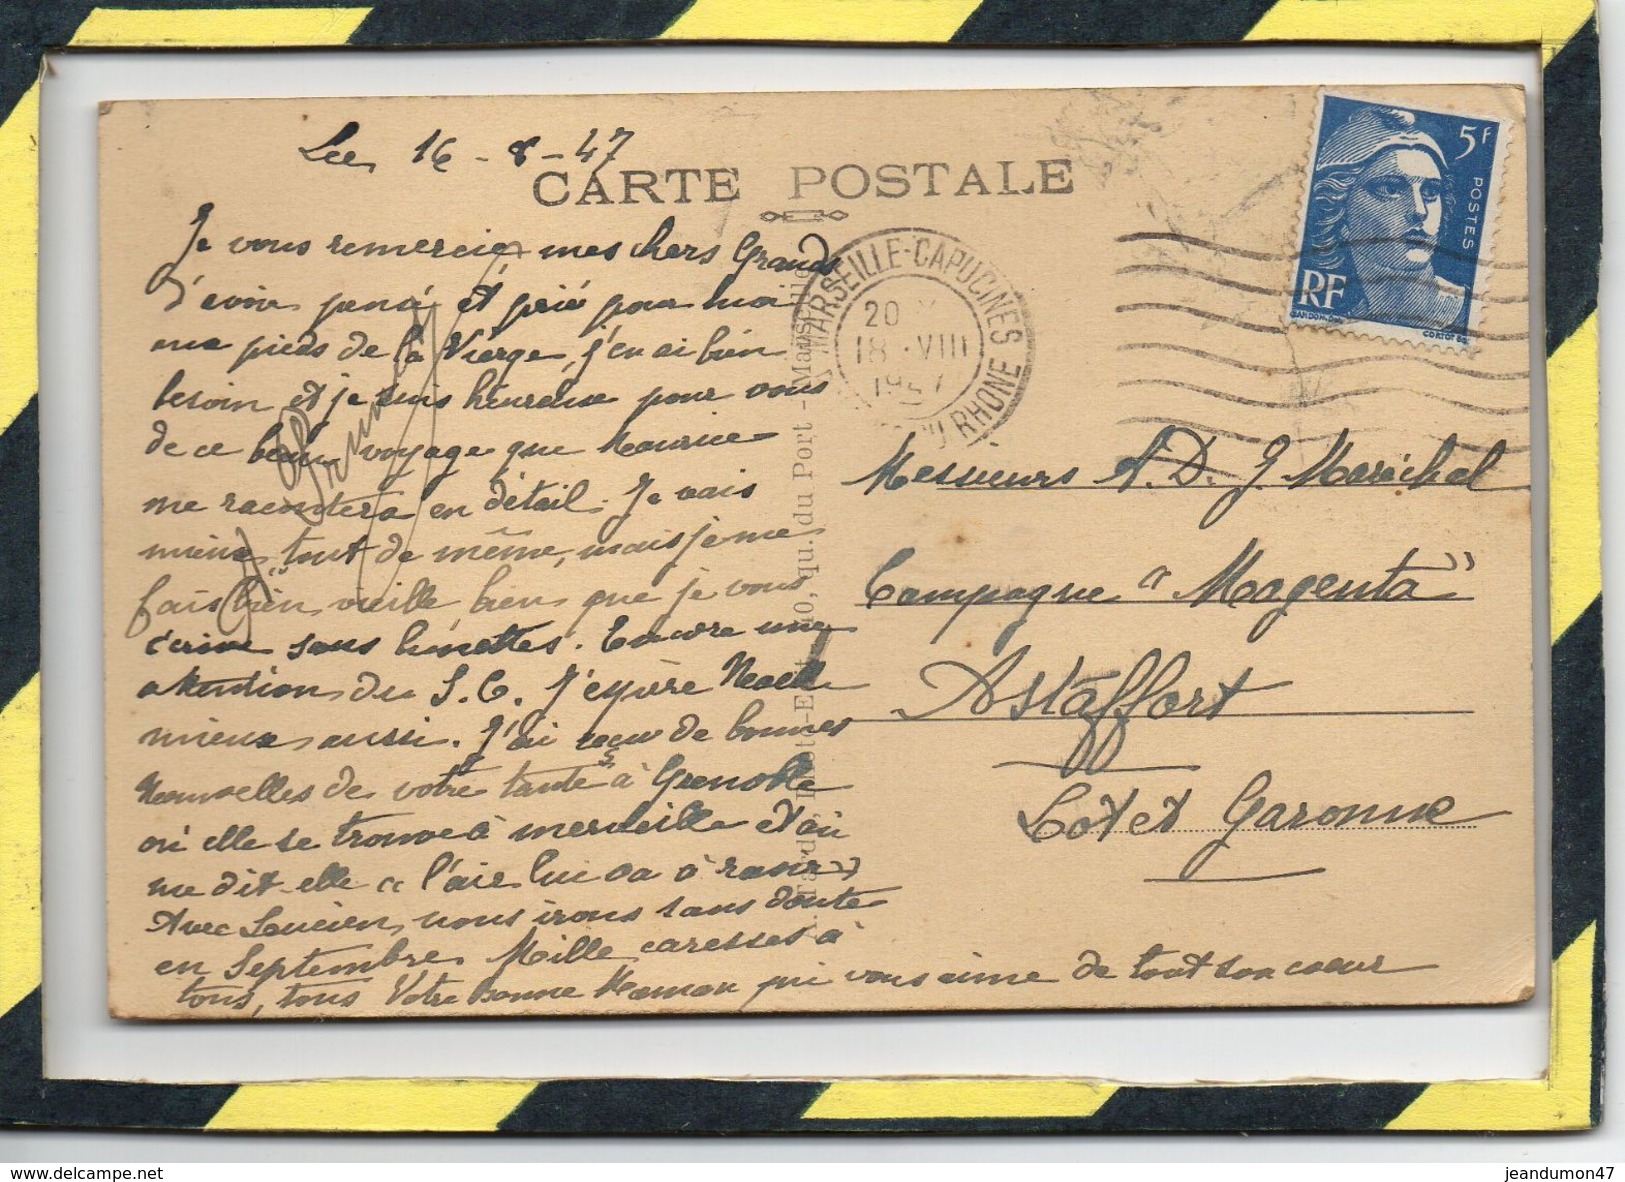 Le 16-8-47
CARTE POSTALE
Je vous remercie mes chers Grands
d'avoir pensé et prié pour moi
aux pieds de la Vierge, j'en ai bien
besoin et je suis heureuse pour vous
de ce beau voyage que Maurice
me racontera en détail. Je vais
mieux tout de même, mais je me
fais bien vieille bien que je vous
écrive sans lunettes. Encore une
attention du S.C. J'espère
mieux aussi. J'ai reçu de bonnes
nouvelles de votre tante à Grenoble
où elle se trouve à merveille et où
me dit-elle "l'air lui va à ravir"
Avec Lucien, nous irons sans doute
en Septembre. Mille caresses à
tous, tous Votre Bonne Maman qui vous aime de tout son coeur
MARSEILLE-CAPUCINES
20
18 VIII
1947
DU RHONE
5F
POSTES
RF
GANDON
CORTOT
Messieurs A. D. J. Maréchal
Campagne "Magenta"
Astaffort
Lot et Garonne
qu. du Port - Marseille
delcampe.net
jeandumon47